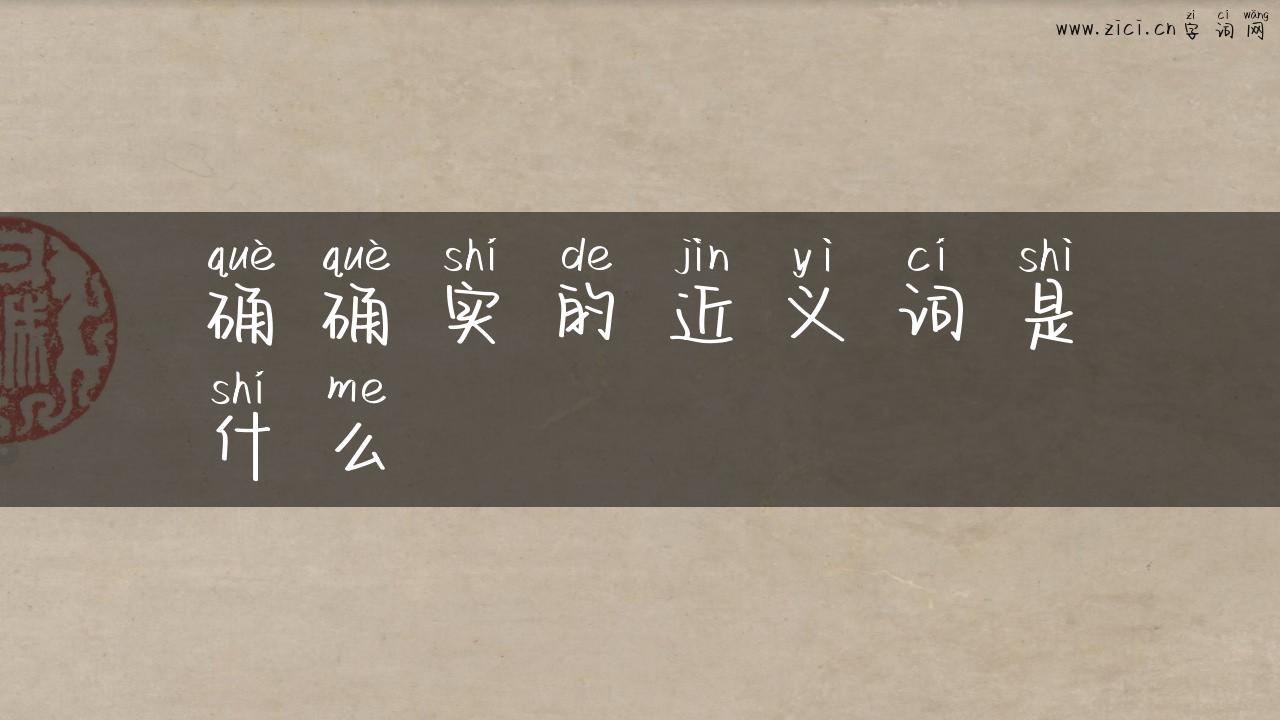 www.zici.cn 字词网
zì cí wǎng
què què shí de jìn yì cí shì
确确实的近义词是
shí me
什么